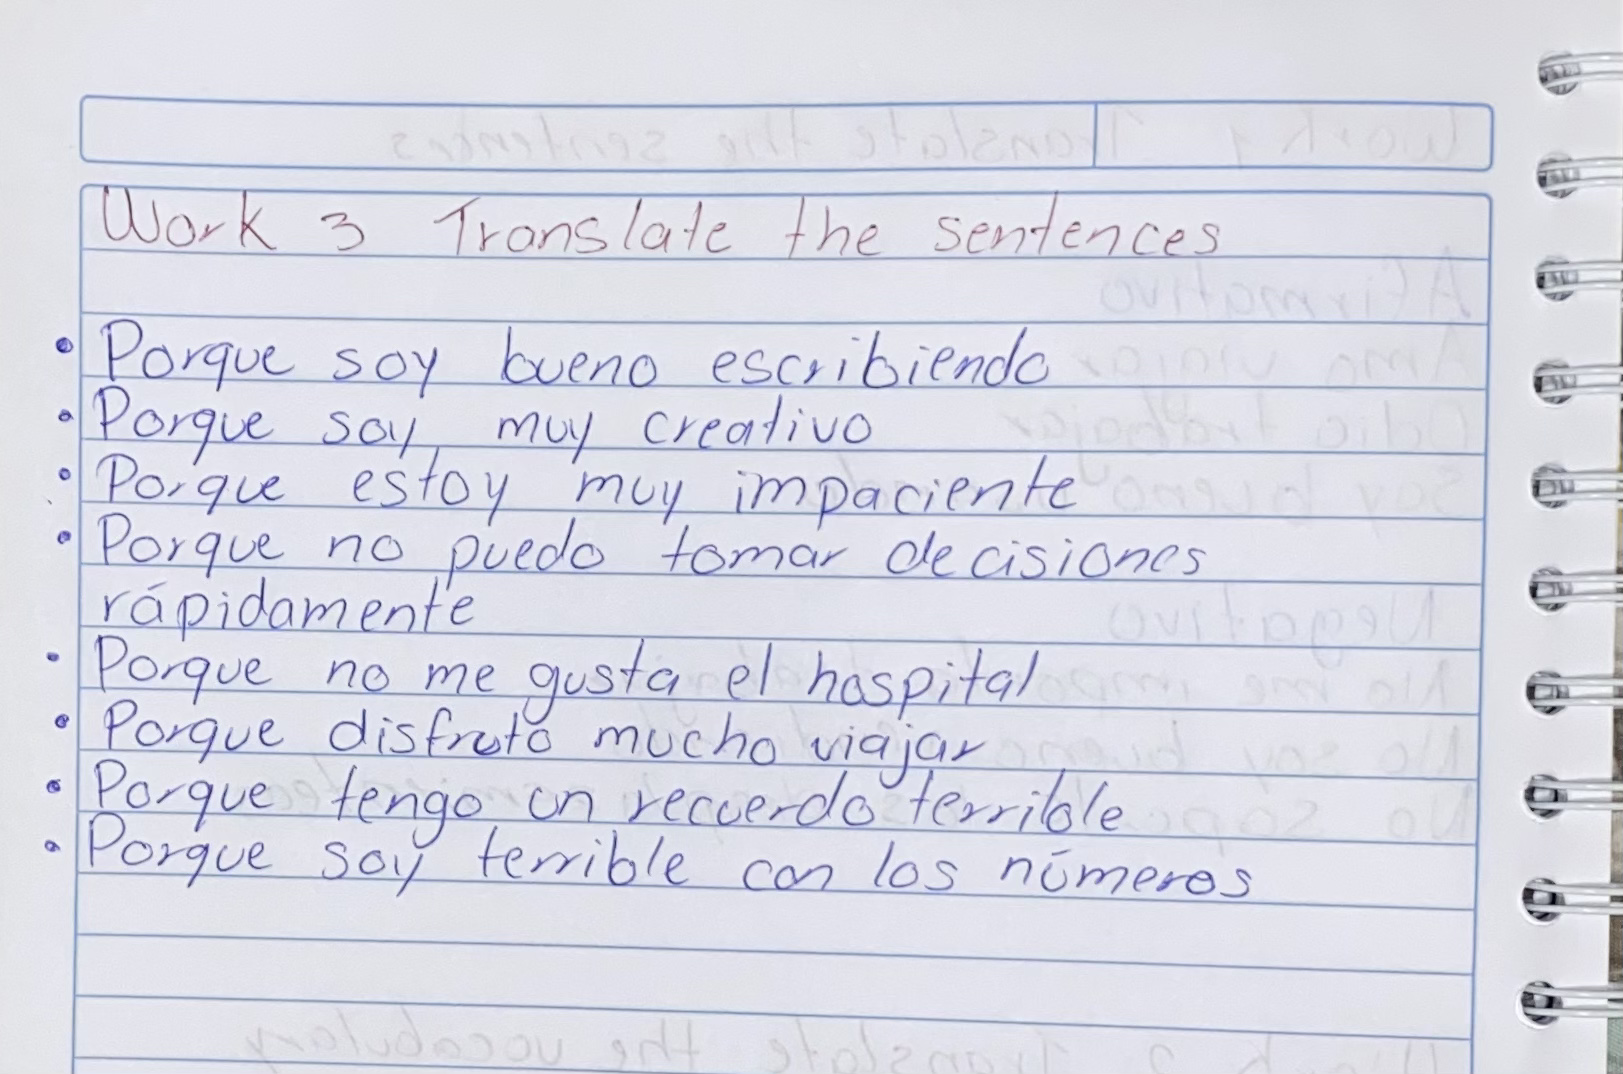 Work 3 Translate the sentences
• Porque soy bueno escribiendo
• Porque soy muy creativo
• Porque estoy muy impaciente
• Porque no puedo tomar decisiones
rápidamente
• Porque no me gusta el hospital
• Porque disfruto mucho viajar
• Porque tengo un recuerdo terrible
• Porque soy terrible con los números